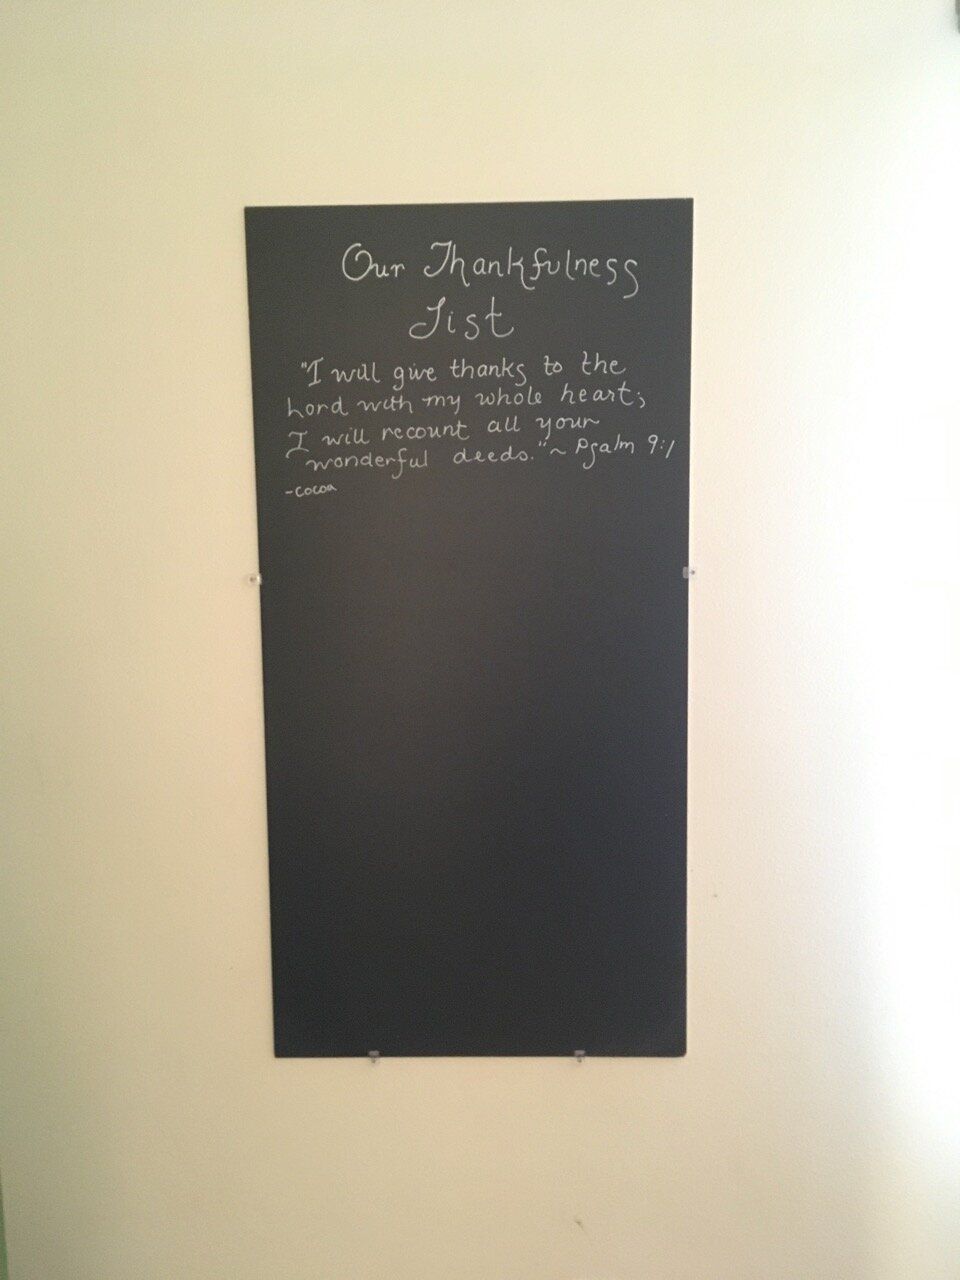 Our Thankfulness
List
"I will give thanks to the
Lord with my whole heart;
I will recount all your
wonderful deeds."~ Psalm 9:1
-cocoa